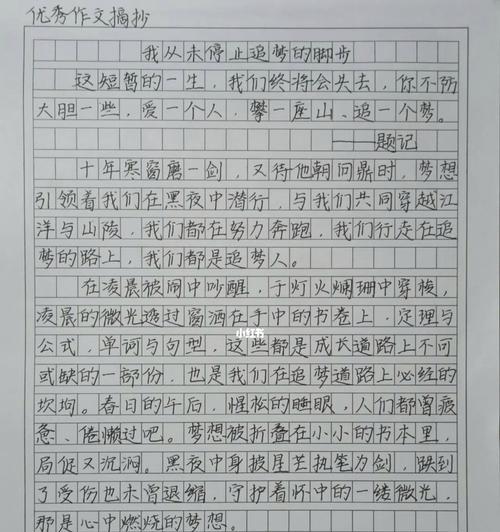 优秀作文摘抄
我从未停止追梦的脚步
这短暂的一生，我们终将会失去，你不防
大胆一些，爱一个人，攀一座山、追一个梦。
——题记
十年寒窗磨一剑，又待他朝问鼎时，梦想
引领着我们在黑夜中潜行，与我们共同穿越江
洋与山陵，我们都在努力奔跑，我们行走在追
梦的路上，我们都是追梦人。
在凌晨被闹中吵醒，于灯火斓珊中穿梭，
凌晨的微光透过窗洒在手中的书卷上，定理与
公式，单词与句型，这些都是成长道路上不可
或缺的一部份，也是我们在追梦道路上必经的
坎坷。春日的午后，惺松的睡眼，人们都曾疲
惫、倦懒过吧。梦想被折叠在小小的书本里，
局促又沉闷。黑夜中身披星芒执笔为剑，跌到
了受伤也未曾退缩，守护着怀中的一缕微光，
那是心中燃烧的梦想。
小红书